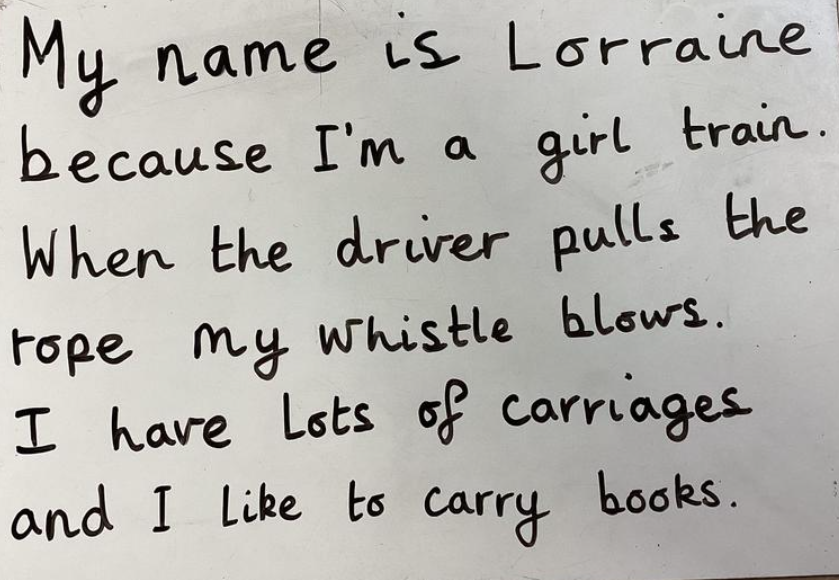 My name is Lorraine
because I'm a girl train.
When the driver pulls the
rope my whistle blows.
I have lots of carriages
and I like to carry books.